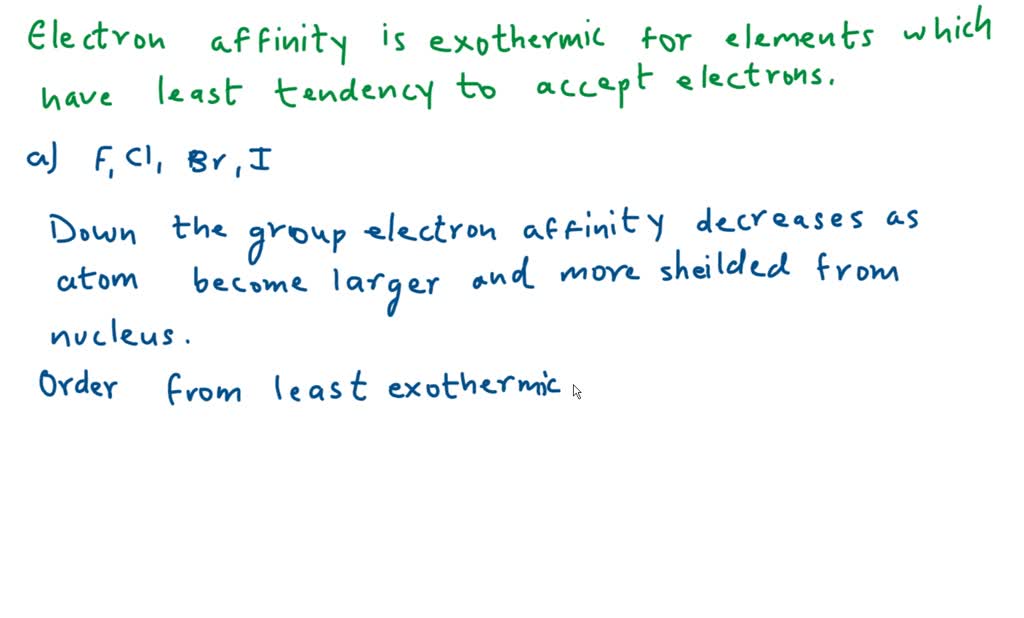 Electron affinity is exothermic for elements which
have least tendency to accept electrons.
a) F, Cl, Br, I
Down the group electron affinity decreases as
atom become larger and more sheilded from
nucleus.
Order from least exothermic